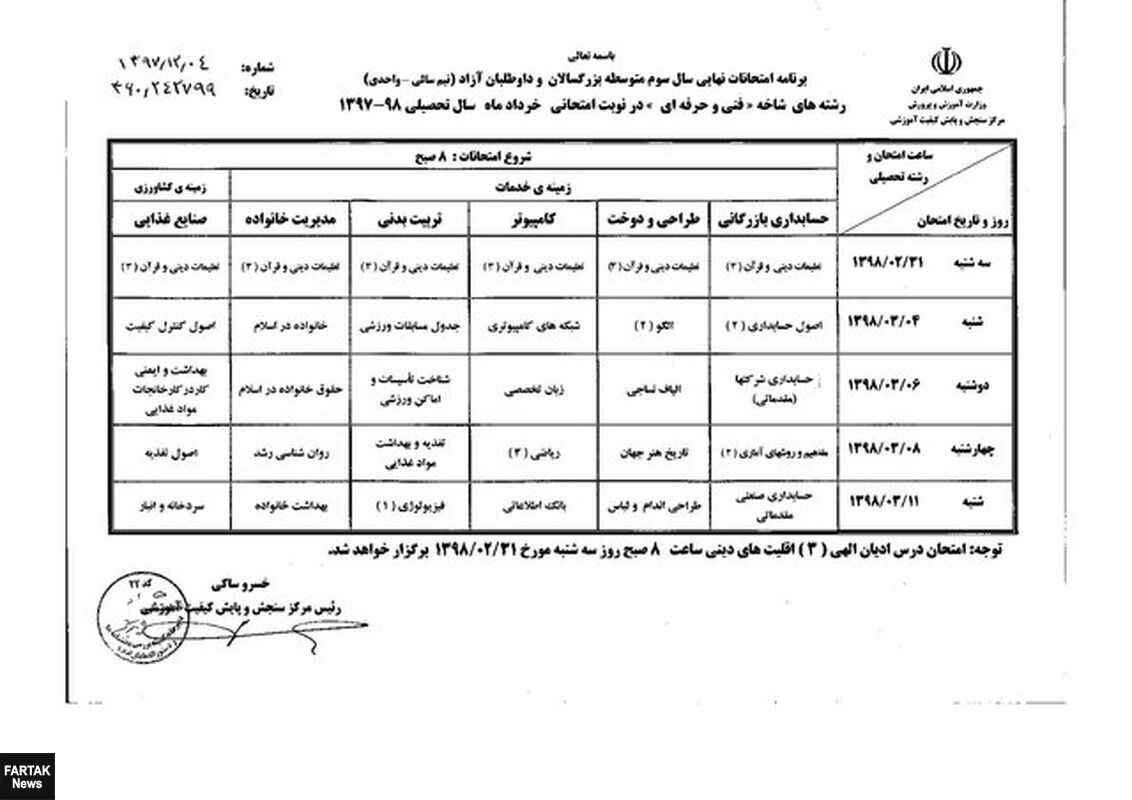 باسمه تعالی
برنامه امتحانات نهایی سال سوم متوسطه بزرگسالان و داوطلبان آزاد (نیم سالی - واحدی)
رشته های شاخه « فنی و حرفه ای » در نوبت امتحانی خرداد ماه سال تحصیلی ۹۸-۱۳۹۷
جمهوری اسلامی ایران
وزارت آموزش و پرورش
مرکز سنجش و پایش کیفیت آموزشی
شماره: ۱۳۹۷/۱۲/۰۴
تاریخ: ۳۶۰/۲۴۲۷۹۹
ساعت امتحان و
رشته تحصیلی
روز و تاریخ امتحان
شروع امتحانات : ۸ صبح
زمینه ی خدمات
زمینه ی کشاورزی
حسابداری بازرگانی
طراحی و دوخت
کامپیوتر
تربیت بدنی
مدیریت خانواده
صنایع غذایی
سه شنبه ۱۳۹۸/۰۲/۳۱
تعلیمات دینی و قرآن (۳)
تعلیمات دینی و قرآن (۳)
تعلیمات دینی و قرآن (۳)
تعلیمات دینی و قرآن (۳)
تعلیمات دینی و قرآن (۳)
تعلیمات دینی و قرآن (۳)
شنبه ۱۳۹۸/۰۳/۰۴
اصول حسابداری (۲)
الگو (۲)
شبکه های کامپیوتری
جدول مسابقات ورزشی
خانواده در اسلام
اصول کنترل کیفیت
دوشنبه ۱۳۹۸/۰۳/۰۶
حسابداری شرکتها
(مقدماتی)
الیاف نساجی
زبان تخصصی
شناخت تأسیسات و
اماکن ورزشی
حقوق خانواده در اسلام
بهداشت و ایمنی
کاردرکارخانجات
مواد غذایی
چهارشنبه ۱۳۹۸/۰۳/۰۸
مفاهیم و روشهای آماری (۲)
تاریخ هنر جهان
ریاضی (۳)
تغذیه و بهداشت
مواد غذایی
روان شناسی رشد
اصول تغذیه
شنبه ۱۳۹۸/۰۳/۱۱
حسابداری صنعتی
مقدماتی
طراحی اندام و لباس
بانک اطلاعاتی
فیزیولوژی (۱)
بهداشت خانواده
سردخانه و انبار
توجه: امتحان درس ادیان الهی (۳) اقلیت های دینی ساعت ۸ صبح روز سه شنبه مورخ ۱۳۹۸/۰۲/۳۱ برگزار خواهد شد.
خسرو ساکی
رئیس مرکز سنجش و پایش کیفیت آموزشی
کد ۲۲
FARTAK
News